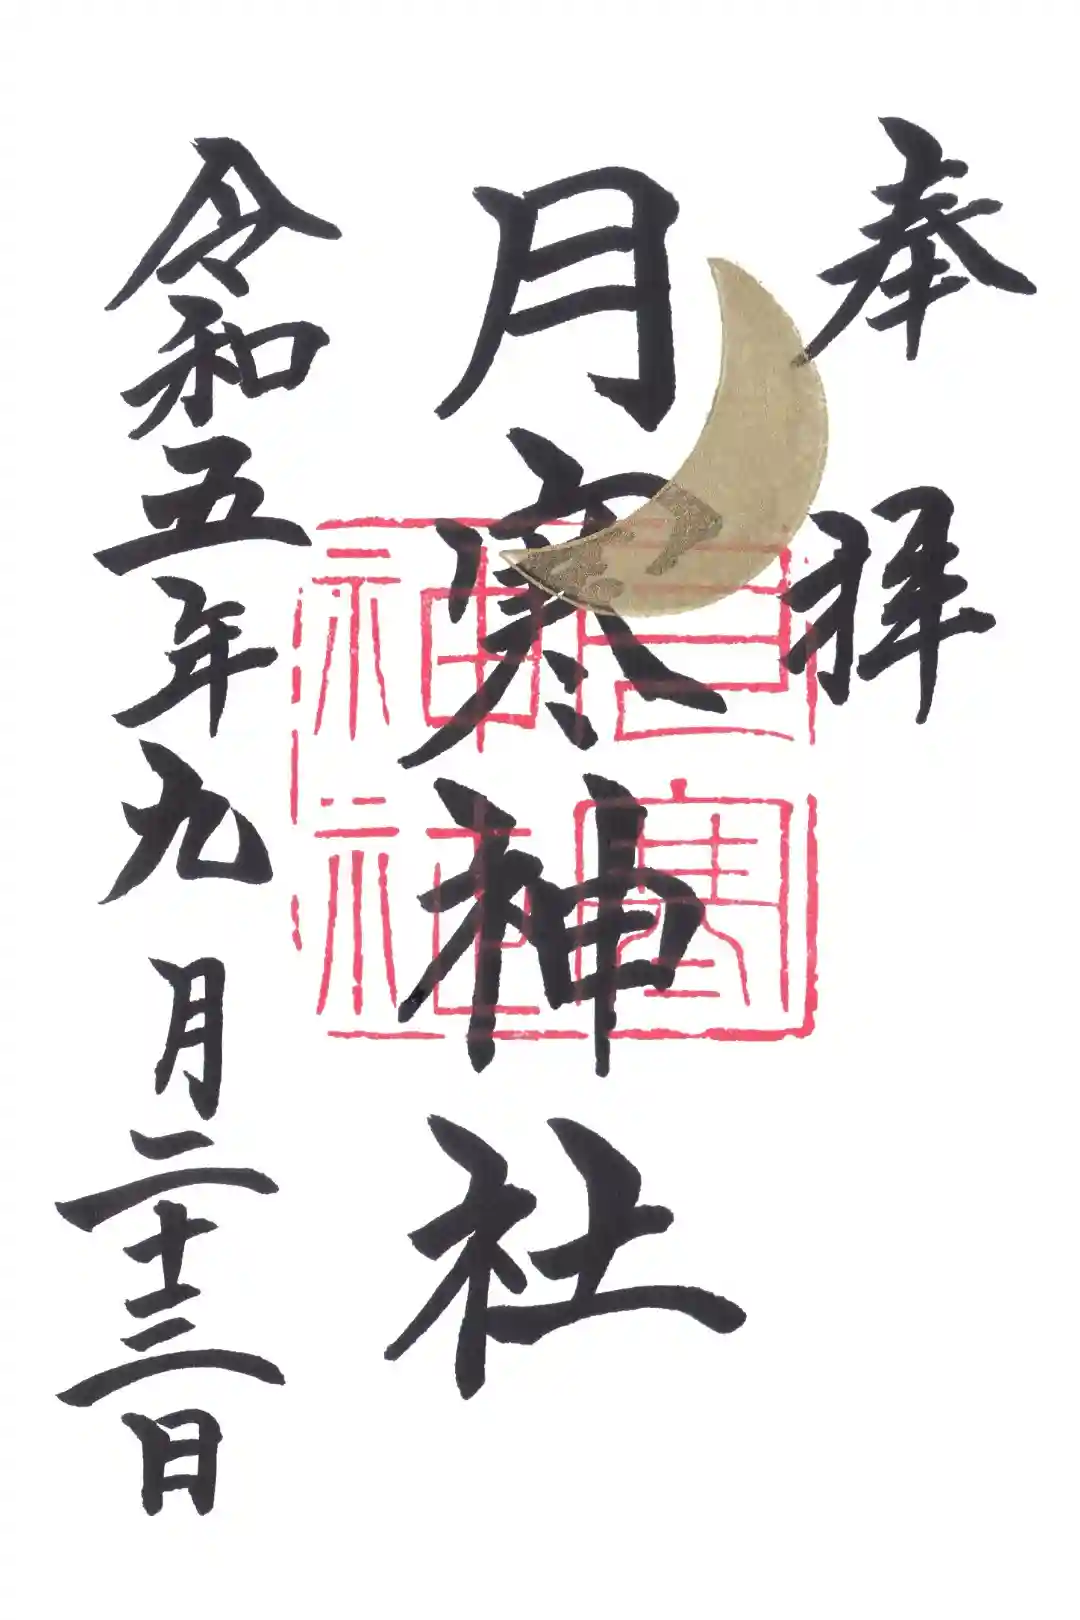 奉拝
月寒神社
令和五年九月二十三日
月寒
神社